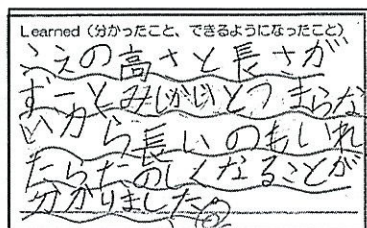 Learned (分かったこと、できるようになったこと)
こえの高さと長さが
ずーっとみじかいとつまらな
いから長いのもいれ
たらたのしくなることが
分かりました。